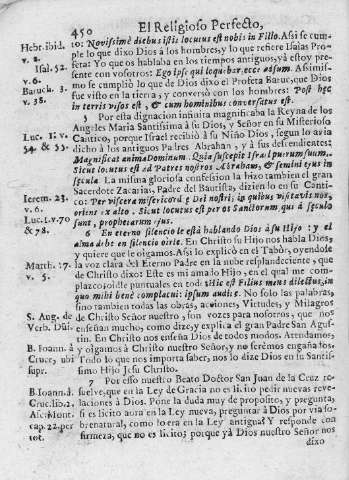 450 El Religioso Perfecto,
Hebr. ibid. to: Novissimè diebus istis locutus est nobis in Filio. Assi se cum-
v. 2. ple lo que dixo Dios à los hombres, y lo que refiere Isaias Pro-
Isai. 52. feta: Yo que os hablaba en los tiempos antiguos, ya estoy pre-
v. 6. sente con vosotros: Ego ipse qui loquebar, ecce adsum. Assimis-
Baruch. 3. mo se cumpliò lo que de Dios dixo el Profeta Baruc, que Dios
v. 38. fue visto en la tierra, y conversò con los hombres: Post hæc
in terris visus est, & cum hominibus conversatus est.
5 Por esta dignacion infinita magnificaba la Reyna de los
Angeles Maria Santissima à su Dios, y Señor en su Misterioso
Luc. 1. v. Cantico, porque Israel recibiò à su Niño Dios, segun lo avia
54. & 55. dicho à los antiguos Padres Abrahan, y à sus descendientes:
Magnificat anima Dominum. Quia suscepit Israel puerum suum,
Sicut locutus est ad Patres nostros Abraham, & semini ejus in
sæcula. La misma gloriosa confession la hizo tambien el gran
Sacerdote Zacarias, Padre del Bautista, dizien lo en su Canti-
Ierem. 23. co: Per viscera misericordiæ Dei nostri, in quibus visitavit nos,
v. 6. oriens ex alto. Sicut locutus est per os Sanctorum qui à sæculo
Luc. 1. v. 70 sunt, prophetarum ejus.
& 78. 6 En eterno silencio le està hablando Dios à su Hijo: y el
alma debe en silencio oirle. En Christo su Hijo nos habla Dios,
y quiere que le oigamos. Assi lo explicò en el Tabòr, oyendole
la voz clara del Eterno Padre en la nube resplandeciente, que
Matth. 17. de Christo dixo: Este es mi amado Hijo, en el qual me com-
v. 5. plazco; oidle puntuales en todo: Hic est Filius meus dilectus, in
quo mihi bene complacui: ipsum audite. No solo las palabras,
sino tambien todas las obras, acciones, Virtudes, y Milagros
S. Aug. de de Christo Señor nuestro, son vozes para nosotros, que nos
Verb. Dñi. enseñan mucho, como dize, y explica el gran Padre San Agus-
tin. En Christo nos enseña Dios de todos modos. Atendamos,
B. Ioann. à y oigamos à Christo nuestro Señor, y no serèmos engañados.
Cruce, ubi Todo lo que nos importa saber, nos lo dize Dios en su Santis-
supr. simo Hijo Jesu Christo.
7 Por esso nuestro Beato Doctor San Juan de la Cruz re-
B. Ioann. à suelve, que en la Ley de Gracia no es licito pedir nuevas reve-
Cruc. lib. 2. laciones à Dios. Pone la duda muy de proposito, y pregunta,
Asc. Mont. si es licito aora en la Ley nueva, preguntar à Dios por via so-
cap. 22. per brenatural, como lo era en la Ley antigua? Y responde con
tot. firmeza, que no es licito; porque yà Dios nuestro Señor nos
dixo